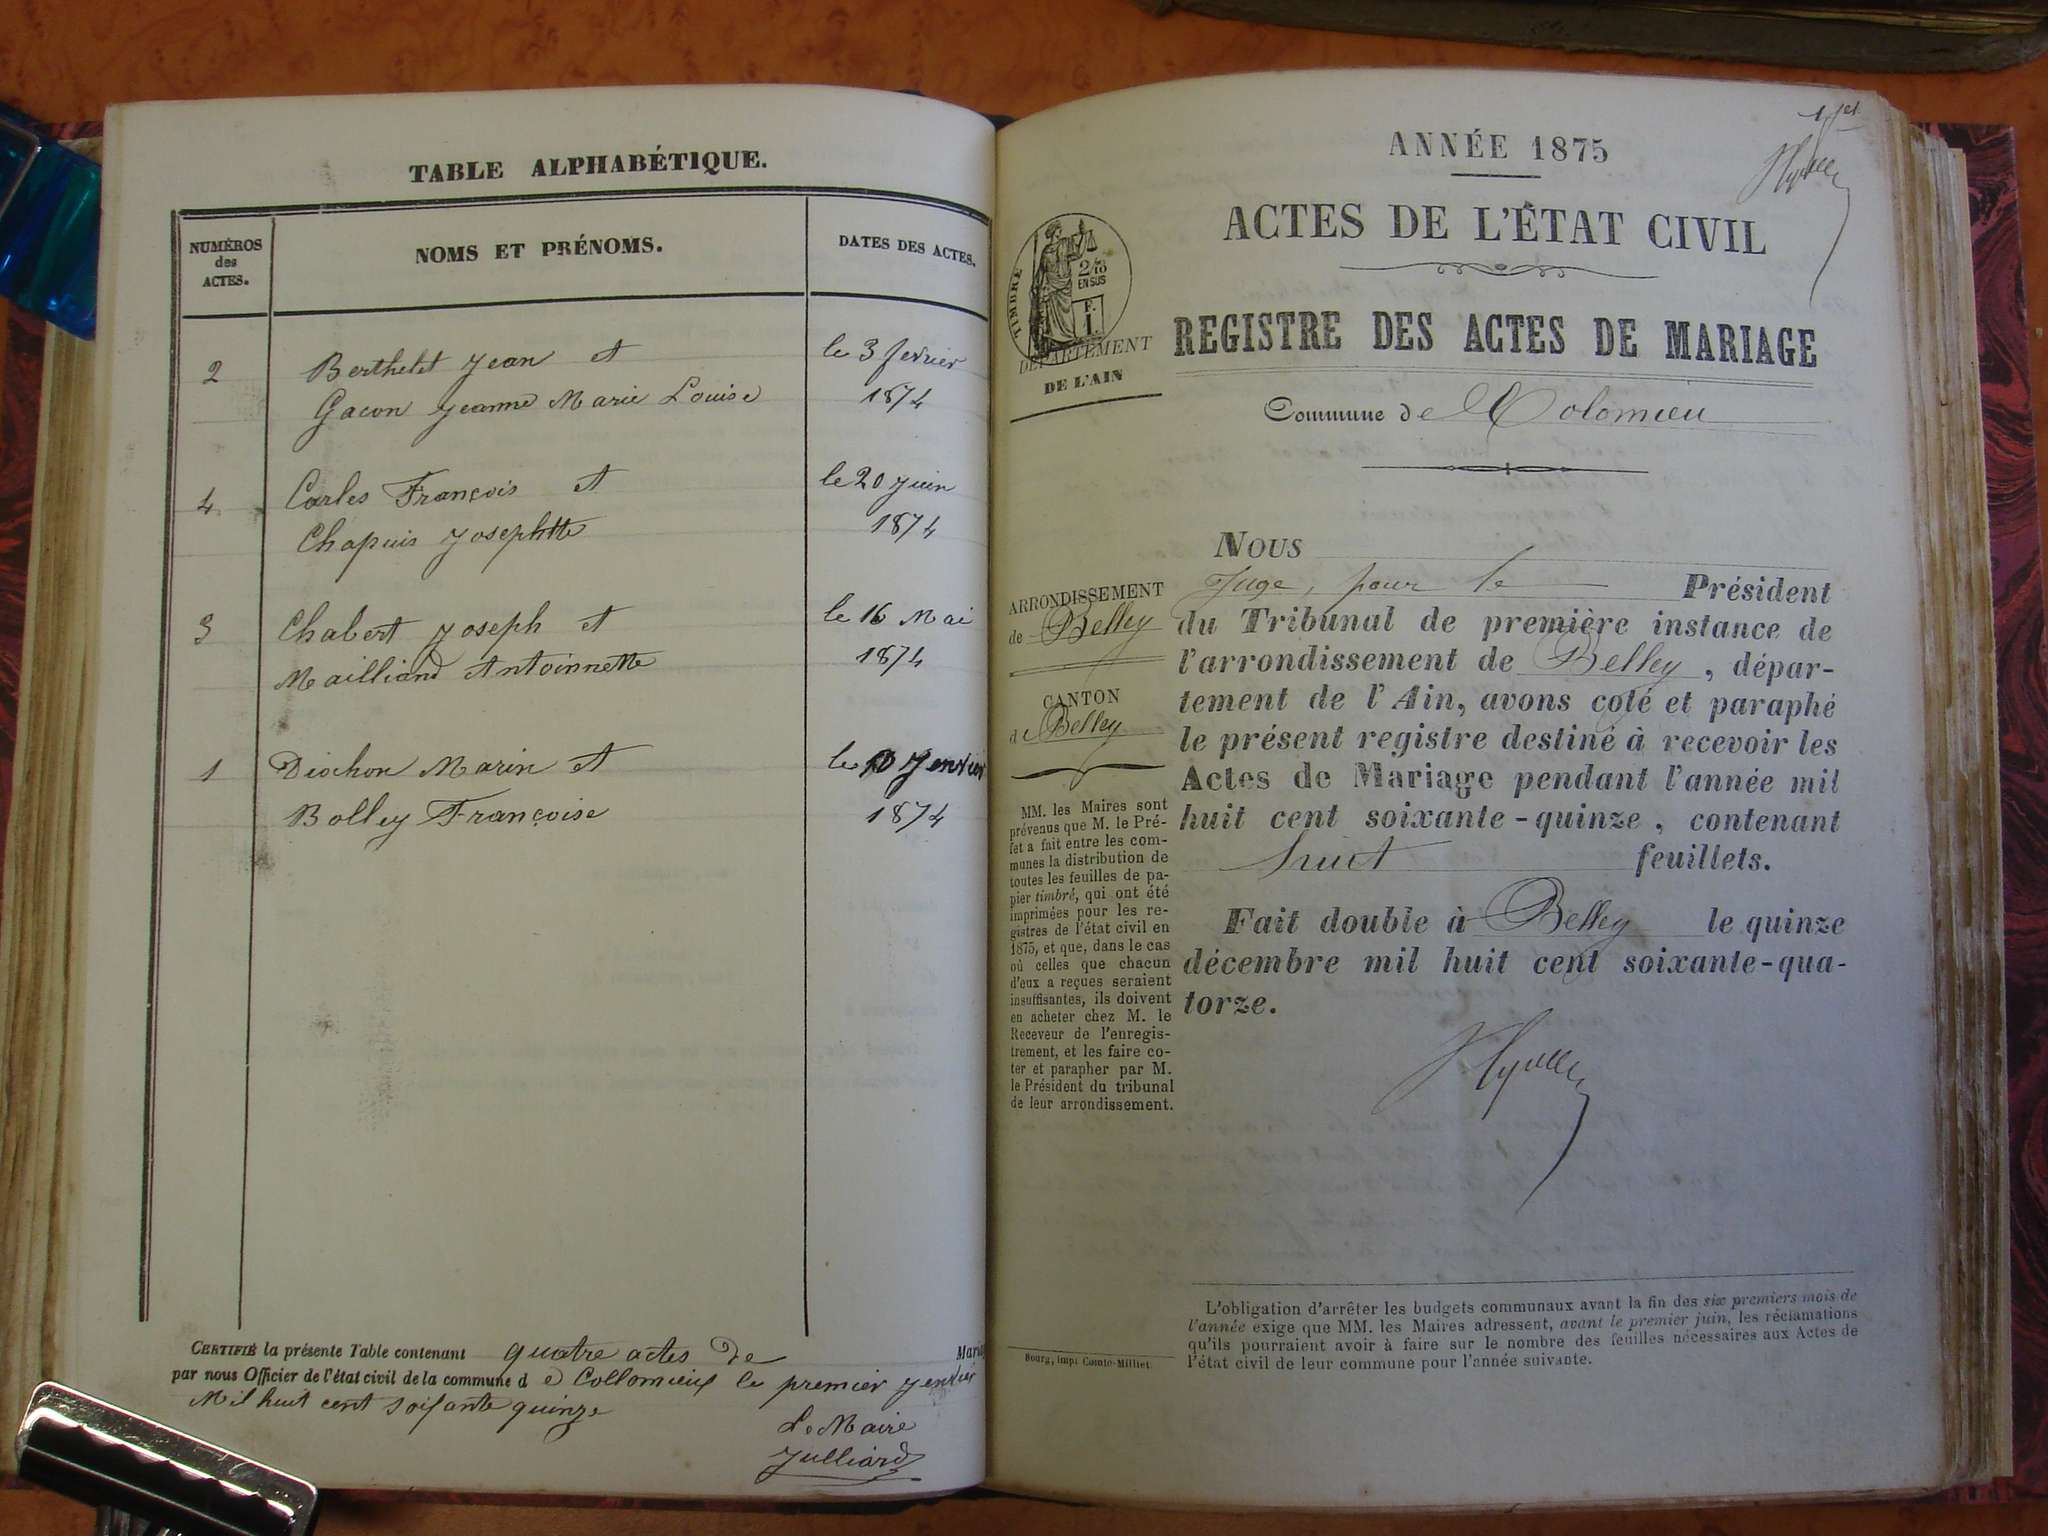 TABLE ALPHABÉTIQUE.
NUMÉROS
des
ACTES.
NOMS ET PRÉNOMS.
DATES DES ACTES.
2 Berthelet Jean et le 3 fevrier
Gacon Jeanne Marie Louise 1874
4 Carles François et le 20 juin
Chapuis Josephtte 1874
3 Chabert Joseph et le 16 Mai
Mailliand Antoinnette 1874
1 Diochon Marin et le 10 Jenvier
Bolley Françoise 1874
CERTIFIÉ la présente Table contenant quatre actes de Mariag
par nous Officier de l'état civil de la commune d e Collomieux le premier Jenvier
Mil huit cent soixante quinze
Le Maire
Julliard
1er
ANNÉE 1875
ACTES DE L'ÉTAT CIVIL
TIMBRE
2/10
EN SUS
F.
1.
DÉPARTEMENT
DE L'AIN
REGISTRE DES ACTES DE MARIAGE
Commune de Colomieu
ARRONDISSEMENT
de Belley
CANTON
de Belley
MM. les Maires sont
prévenus que M. le Pré-
fet a fait entre les com-
munes la distribution de
toutes les feuilles de pa-
pier timbré, qui ont été
imprimées pour les re-
gistres de l'état civil en
1875, et que, dans le cas
où celles que chacun
d'eux a reçues seraient
insuffisantes, ils doivent
en acheter chez M. le
Receveur de l'enregis-
trement, et les faire co-
ter et parapher par M.
le Président du tribunal
de leur arrondissement.
Bourg, imp. Comte-Milliet.
NOUS
Juge, pour le Président
du Tribunal de première instance de
l'arrondissement de Belley, dépar-
tement de l'Ain, avons coté et paraphé
le présent registre destiné à recevoir les
Actes de Mariage pendant l'année mil
huit cent soixante-quinze, contenant
huit feuillets.
Fait double à Belley le quinze
décembre mil huit cent soixante-qua-
torze.
L'obligation d'arrêter les budgets communaux avant la fin des six premiers mois de
l'année exige que MM. les Maires adressent, avant le premier juin, les réclamations
qu'ils pourraient avoir à faire sur le nombre des feuilles nécessaires aux Actes de
l'état civil de leur commune pour l'année suivante.